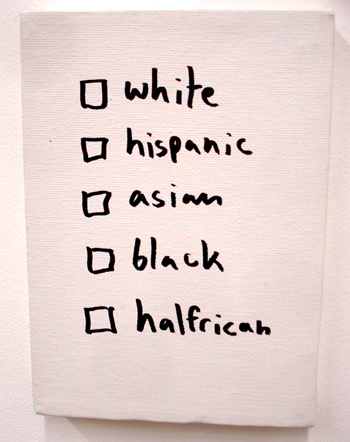 white
hispanic
asian
black
halfrican